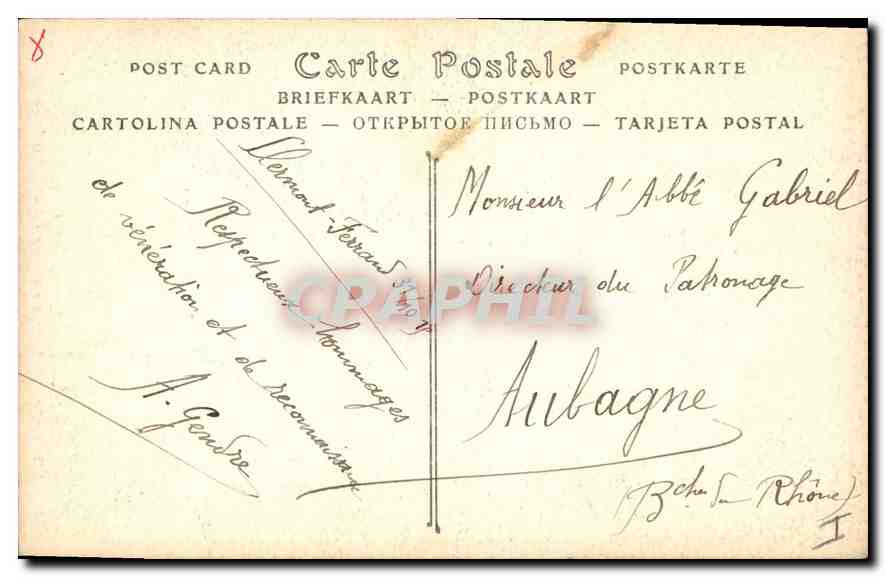 POST CARD Carte Postale POSTKARTE
BRIEFKAART — POSTKAART
CARTOLINA POSTALE — ОТКРЫТОЕ ПИСЬМО — TARJETA POSTAL
Clermont-Ferrand
Respectueux hommages
de vénération et de reconnaissance
A. Gendre
Monsieur l'Abbé Gabriel
Directeur du Patronage
Aubagne
(Bches du Rhône)
I
CPAPHIL